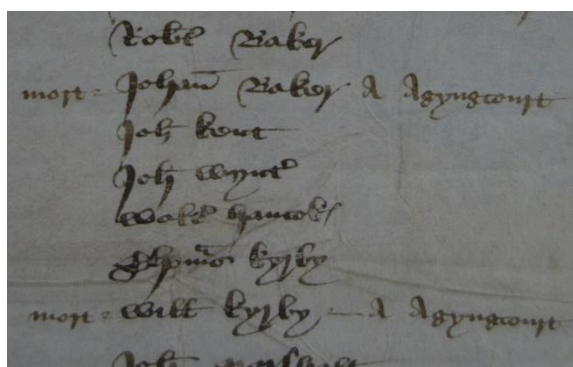 Robt Baker
mort Johan Baker A Agyngcourt
Joh kent
Joh wynt
hancok
kyrby
mort Will kyrby A Agyngcourt
Joh